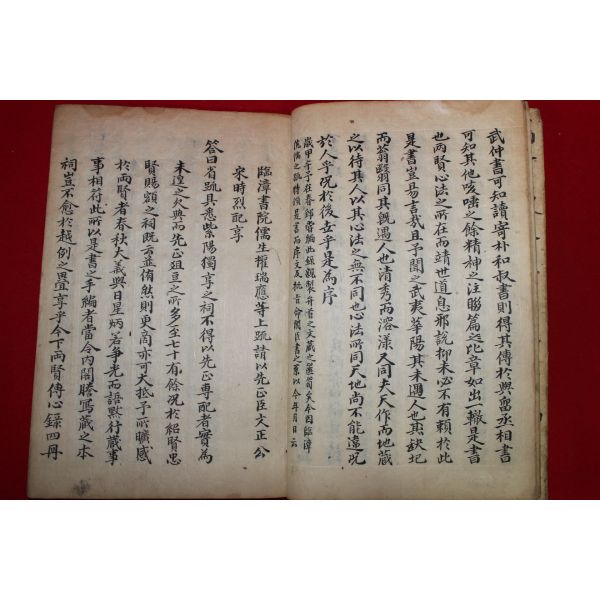 武仲書可知讀寄朴和叔書則得其傳於與留丞相書
可知其他咳唾之餘精神之注畷篇之比章如出一轍是書
也兩賢心法之所在而靖世道息邪說抑未必不有賴於此
是書豈易言哉且予聞之武夷華陽其未遇人也其缺圮
而蓊翳同其旣遇人也清秀而溶漾又同夫天作而地藏
之以待其人以其心法之無不同也心法所同天地尚不能違况
於人乎况於後世乎是爲序
歲甲午予在春邸嘗編此錄親製弁首之文藏之篋笥矣今因臨漳
院儒之疏特頒是書而序文及批旨命閣臣書之系以今年月日云
臨漳書院儒生權瑞應等上疏請以先正臣文正公
宋時烈配享
答曰省疏具悉紫陽獨享之祠不得以先正專配者實爲
未遑之欠典而先正俎豆之所多至七十有餘况於紹賢忠
賢賜額之祠旣並侑然則更商亦可大抵予所曠感
於兩賢者春秋大義與日星炳若爭光而語默行藏事
事相符此所以是書之手編者當令內閣謄寫藏之本
祠豈不愈於越例之疊享乎今下兩賢傳心錄四册